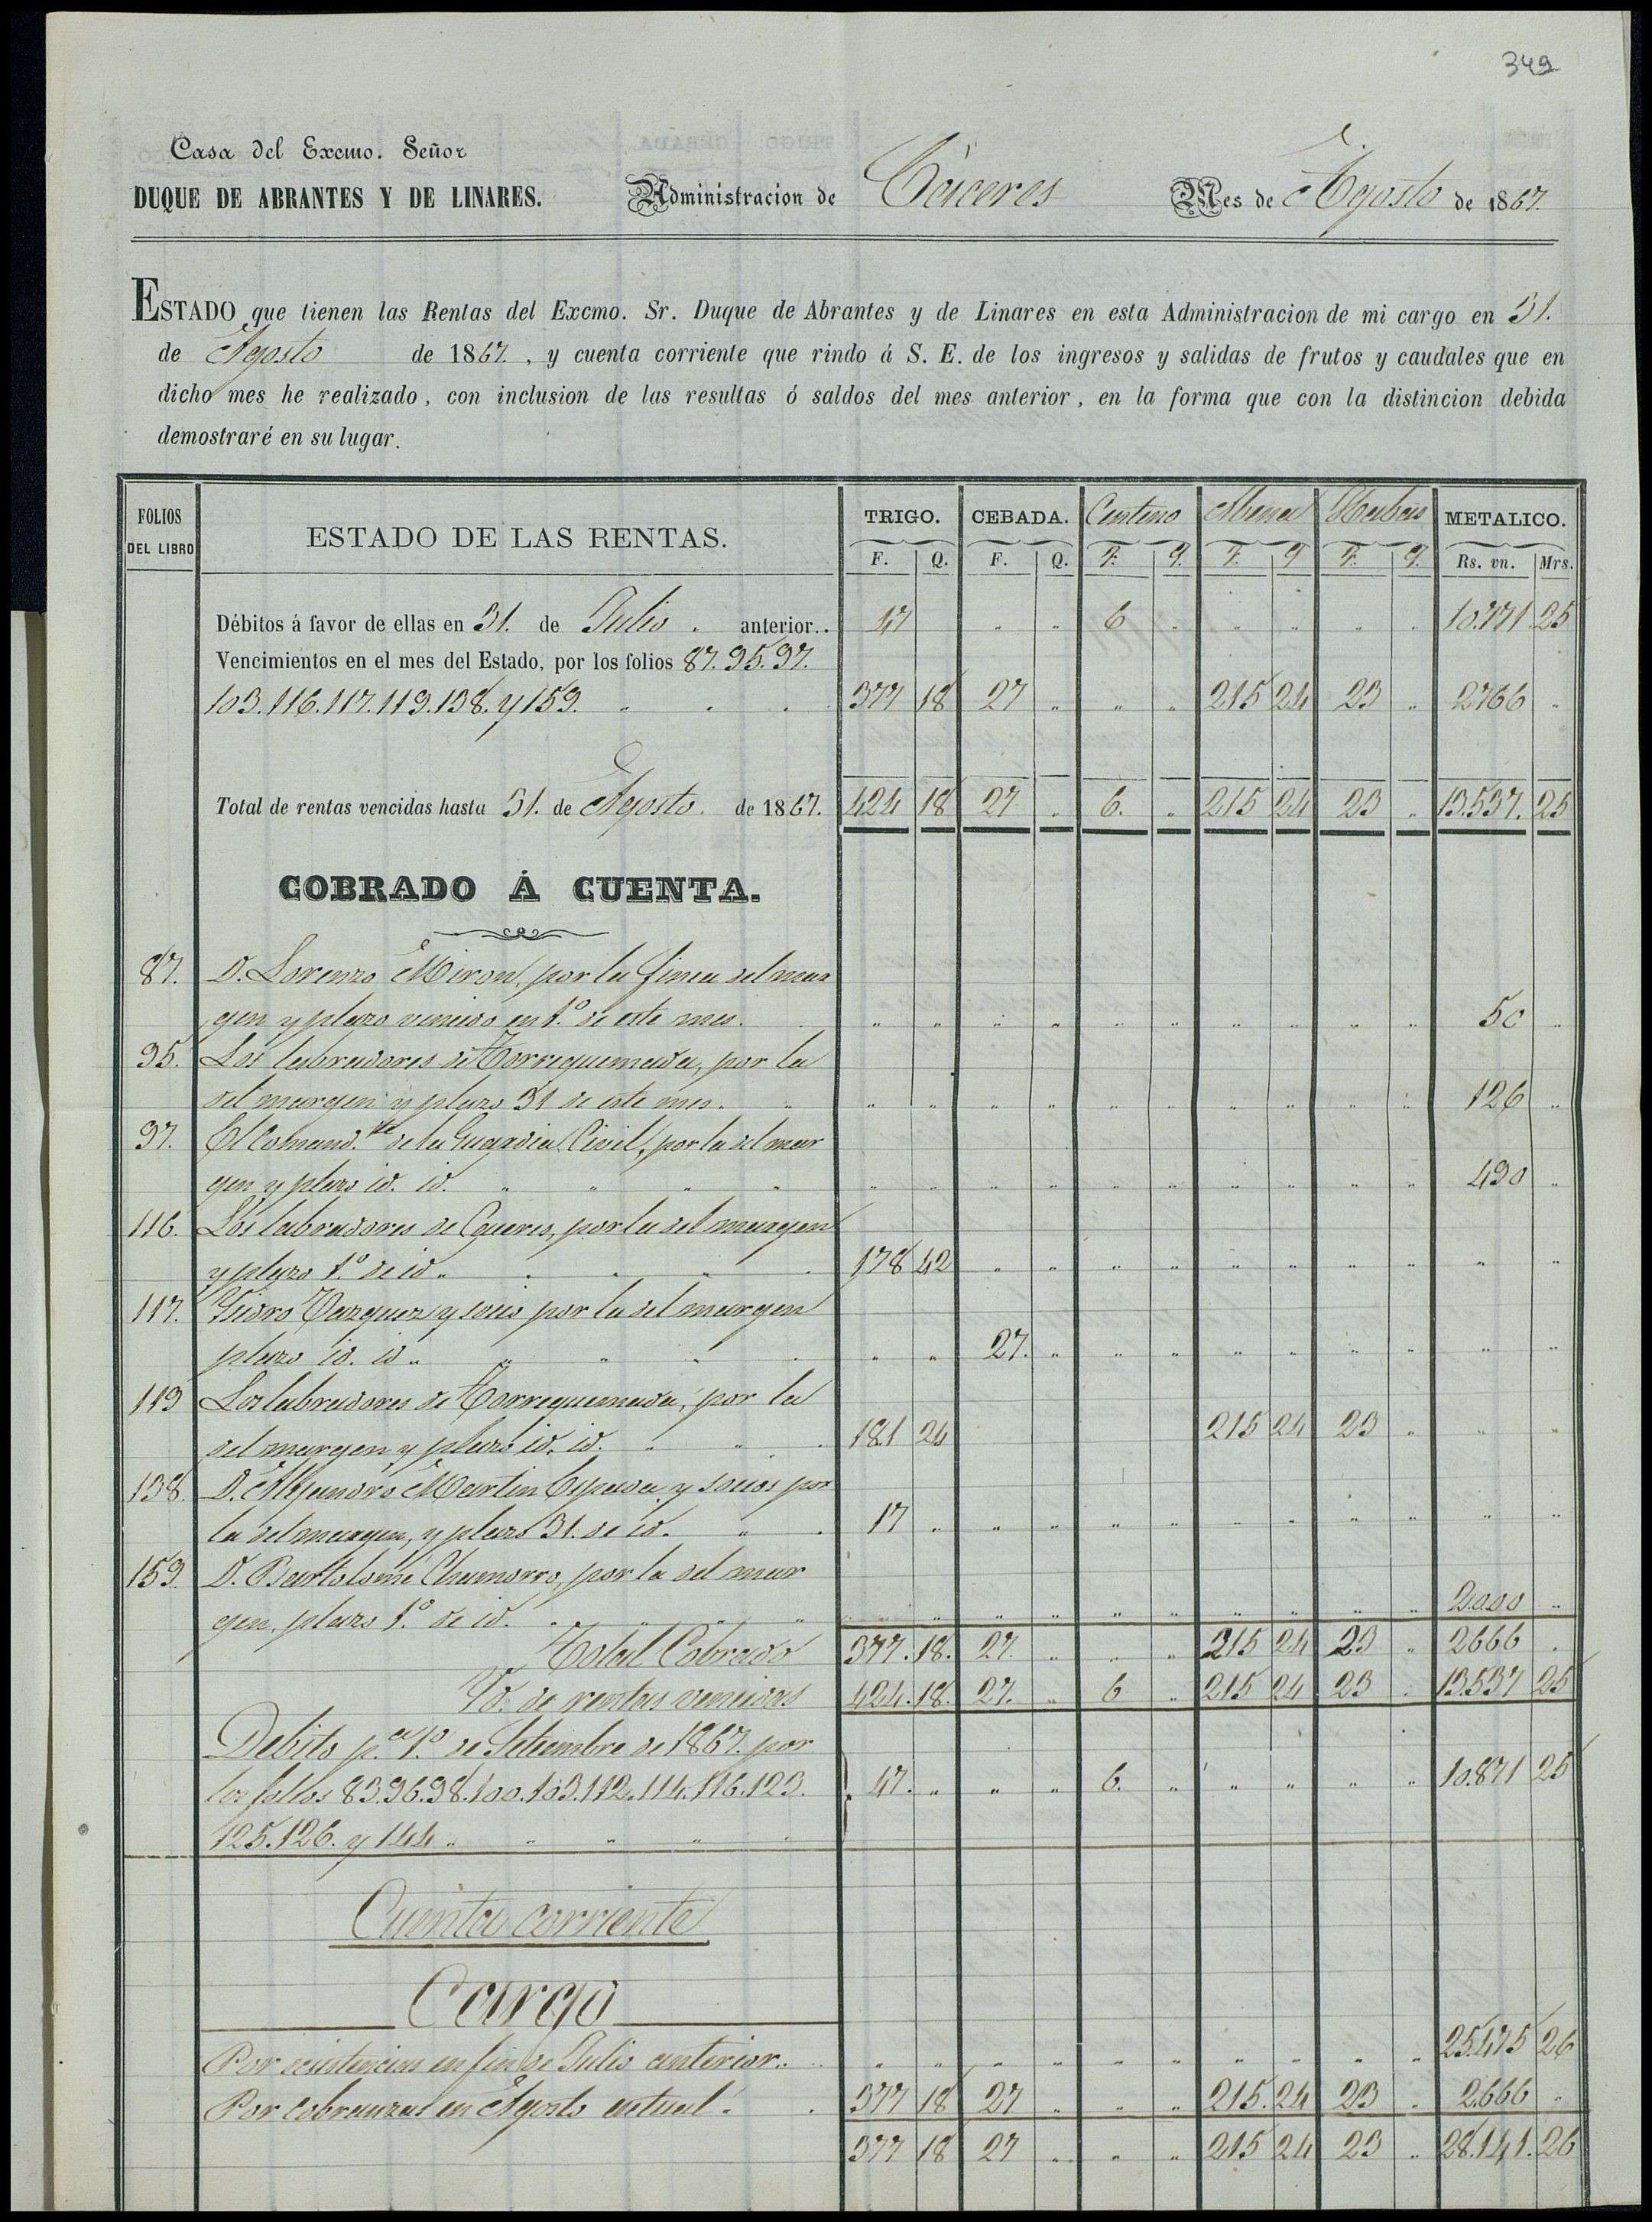 349
Casa del Excmo. Señor
DUQUE DE ABRANTES Y DE LINARES. Administracion de Cáceres Mes de Agosto de 1867.
ESTADO que tienen las Rentas del Excmo. Sr. Duque de Abrantes y de Linares en esta Administracion de mi cargo en 31.
de Agosto de 1867. , y cuenta corriente que rindo á S. E. de los ingresos y salidas de frutos y caudales que en
dicho mes he realizado, con inclusion de las resultas ó saldos del mes anterior, en la forma que con la distincion debida
demostraré en su lugar.
FOLIOS DEL LIBRO ESTADO DE LAS RENTAS. TRIGO. CEBADA. Centeno Abena Habas METALICO.
F. Q. F. Q. F. q. F. q F. q. Rs. vn. Mrs.
Débitos á favor de ellas en 31. de Julio . anterior.. 47 " " 6 " " " " " 10.771 25
Vencimientos en el mes del Estado, por los folios 87. 95. 97.
103. 116. 117. 119. 138. y 159. " . . 377 18 27 " " " 215 24 23 " 2766 "
Total de rentas vencidas hasta 31. de Agosto. de 1867. 424 18 27 " 6. " 215 24 23 " 13.537. 25
COBRADO Á CUENTA.
87. D. Lorenzo Miron, por la finca del mar
gen y plazo vencido en 1.º de este mes. . " " " " " " " " " " 50 "
95. Los labradores de Torrequemada, por la
del margen y plazo 31 de este mes. " " " " " " " " " " " 126 "
97. El Comand.te de la Guardia Civil, por la del mar
gen y plazo id. id. " " " " " " " " " " " " " " 490 "
116. Los labradores de Caceres, por la del margen
y plazo 1.º de id " . . " . 178 42 " " " " " " " " " "
117. Ysidro Vazquez y socio por la del margen
plazo id. id " " " " . " " 27. " " " " " " " " "
119 Los labradores de Torrequemada, por la
del margen y plazo id. id. " " . 181 24 215 24 23 " " "
138. D. Alejandro Martin Cepeda y socios por
la del margen, y plazo 31. de id. " . 17 " " " " " " " " " " "
159. D. Bartolomé Chamorro, por la del mar
gen, plazo 1.º de id. . " " " " " " " " " " " " " 2.000 "
Total Cobrado 377. 18. 27. " " " 215 24 23 " 2666 .
Yd. de rentas vencidas 424. 18. 27. " 6 " 215 24 23 . 13.537 25
Debito p.a 1.º de Setiembre de 1867. por
los folios 83. 96. 98. 100. 103. 112. 114. 116. 123. 47. " " " 6. " " " " " 10.871 25
125. 126. y 144 " " " " "
Cuenta corriente
Cargo
Por existencias en fin de Julio anterior. . " " " " " " " " " " 25.475 26
Por cobranzas en Agosto actual . . 377 18 27 " " " 215. 24 23 . 2.666 "
377 18 27 " " " 215 24 23 " 28.141. 26